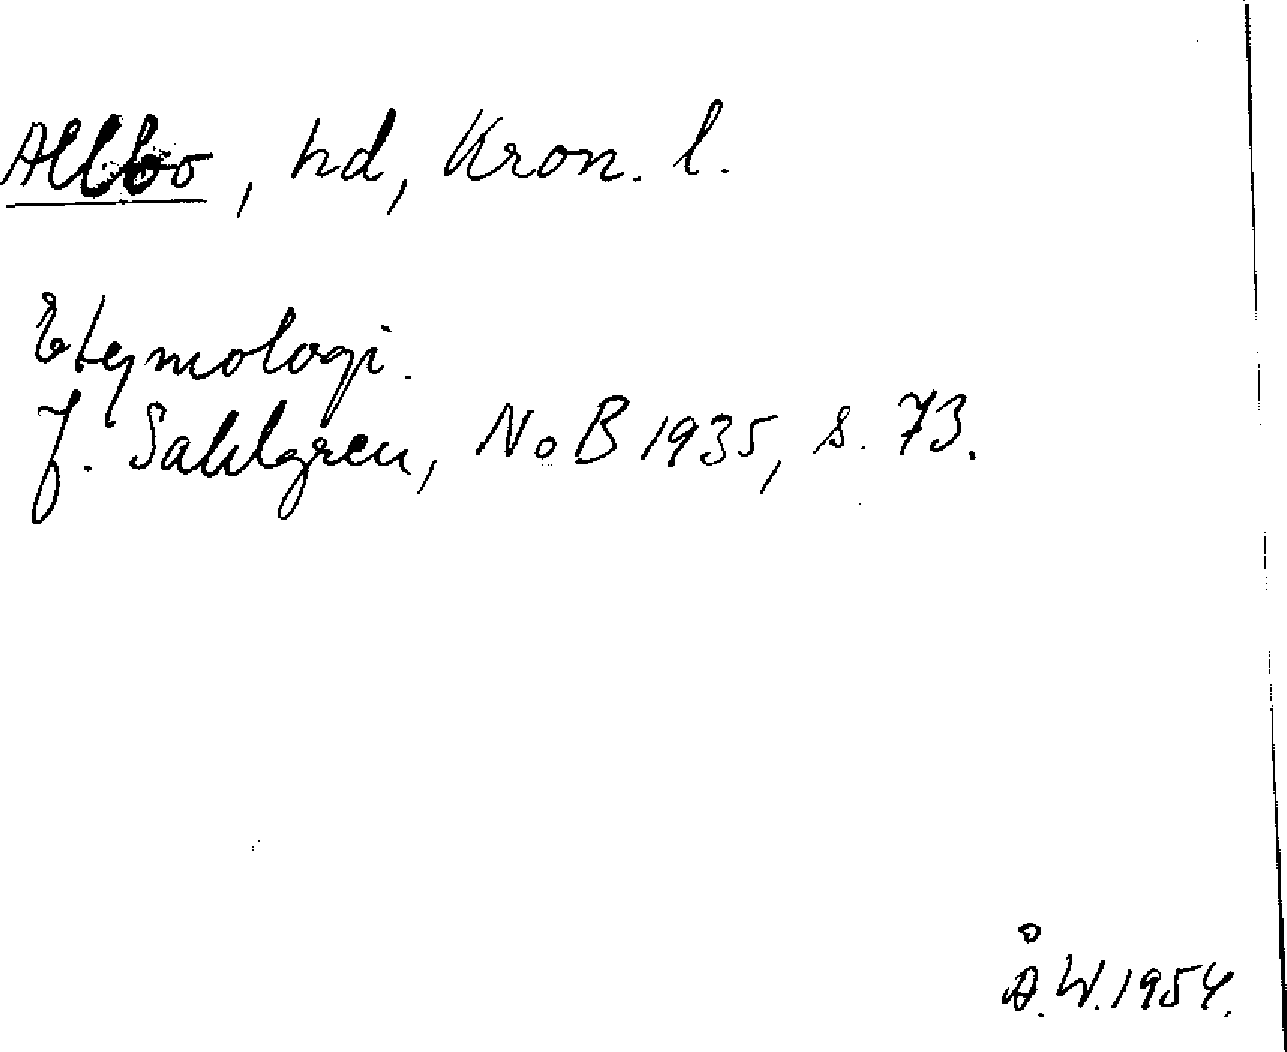 Allbo, hd, Kron. l.
Etymologi.
J. Sahlgren, NoB 1935, s. 73.
Å.W.1954.